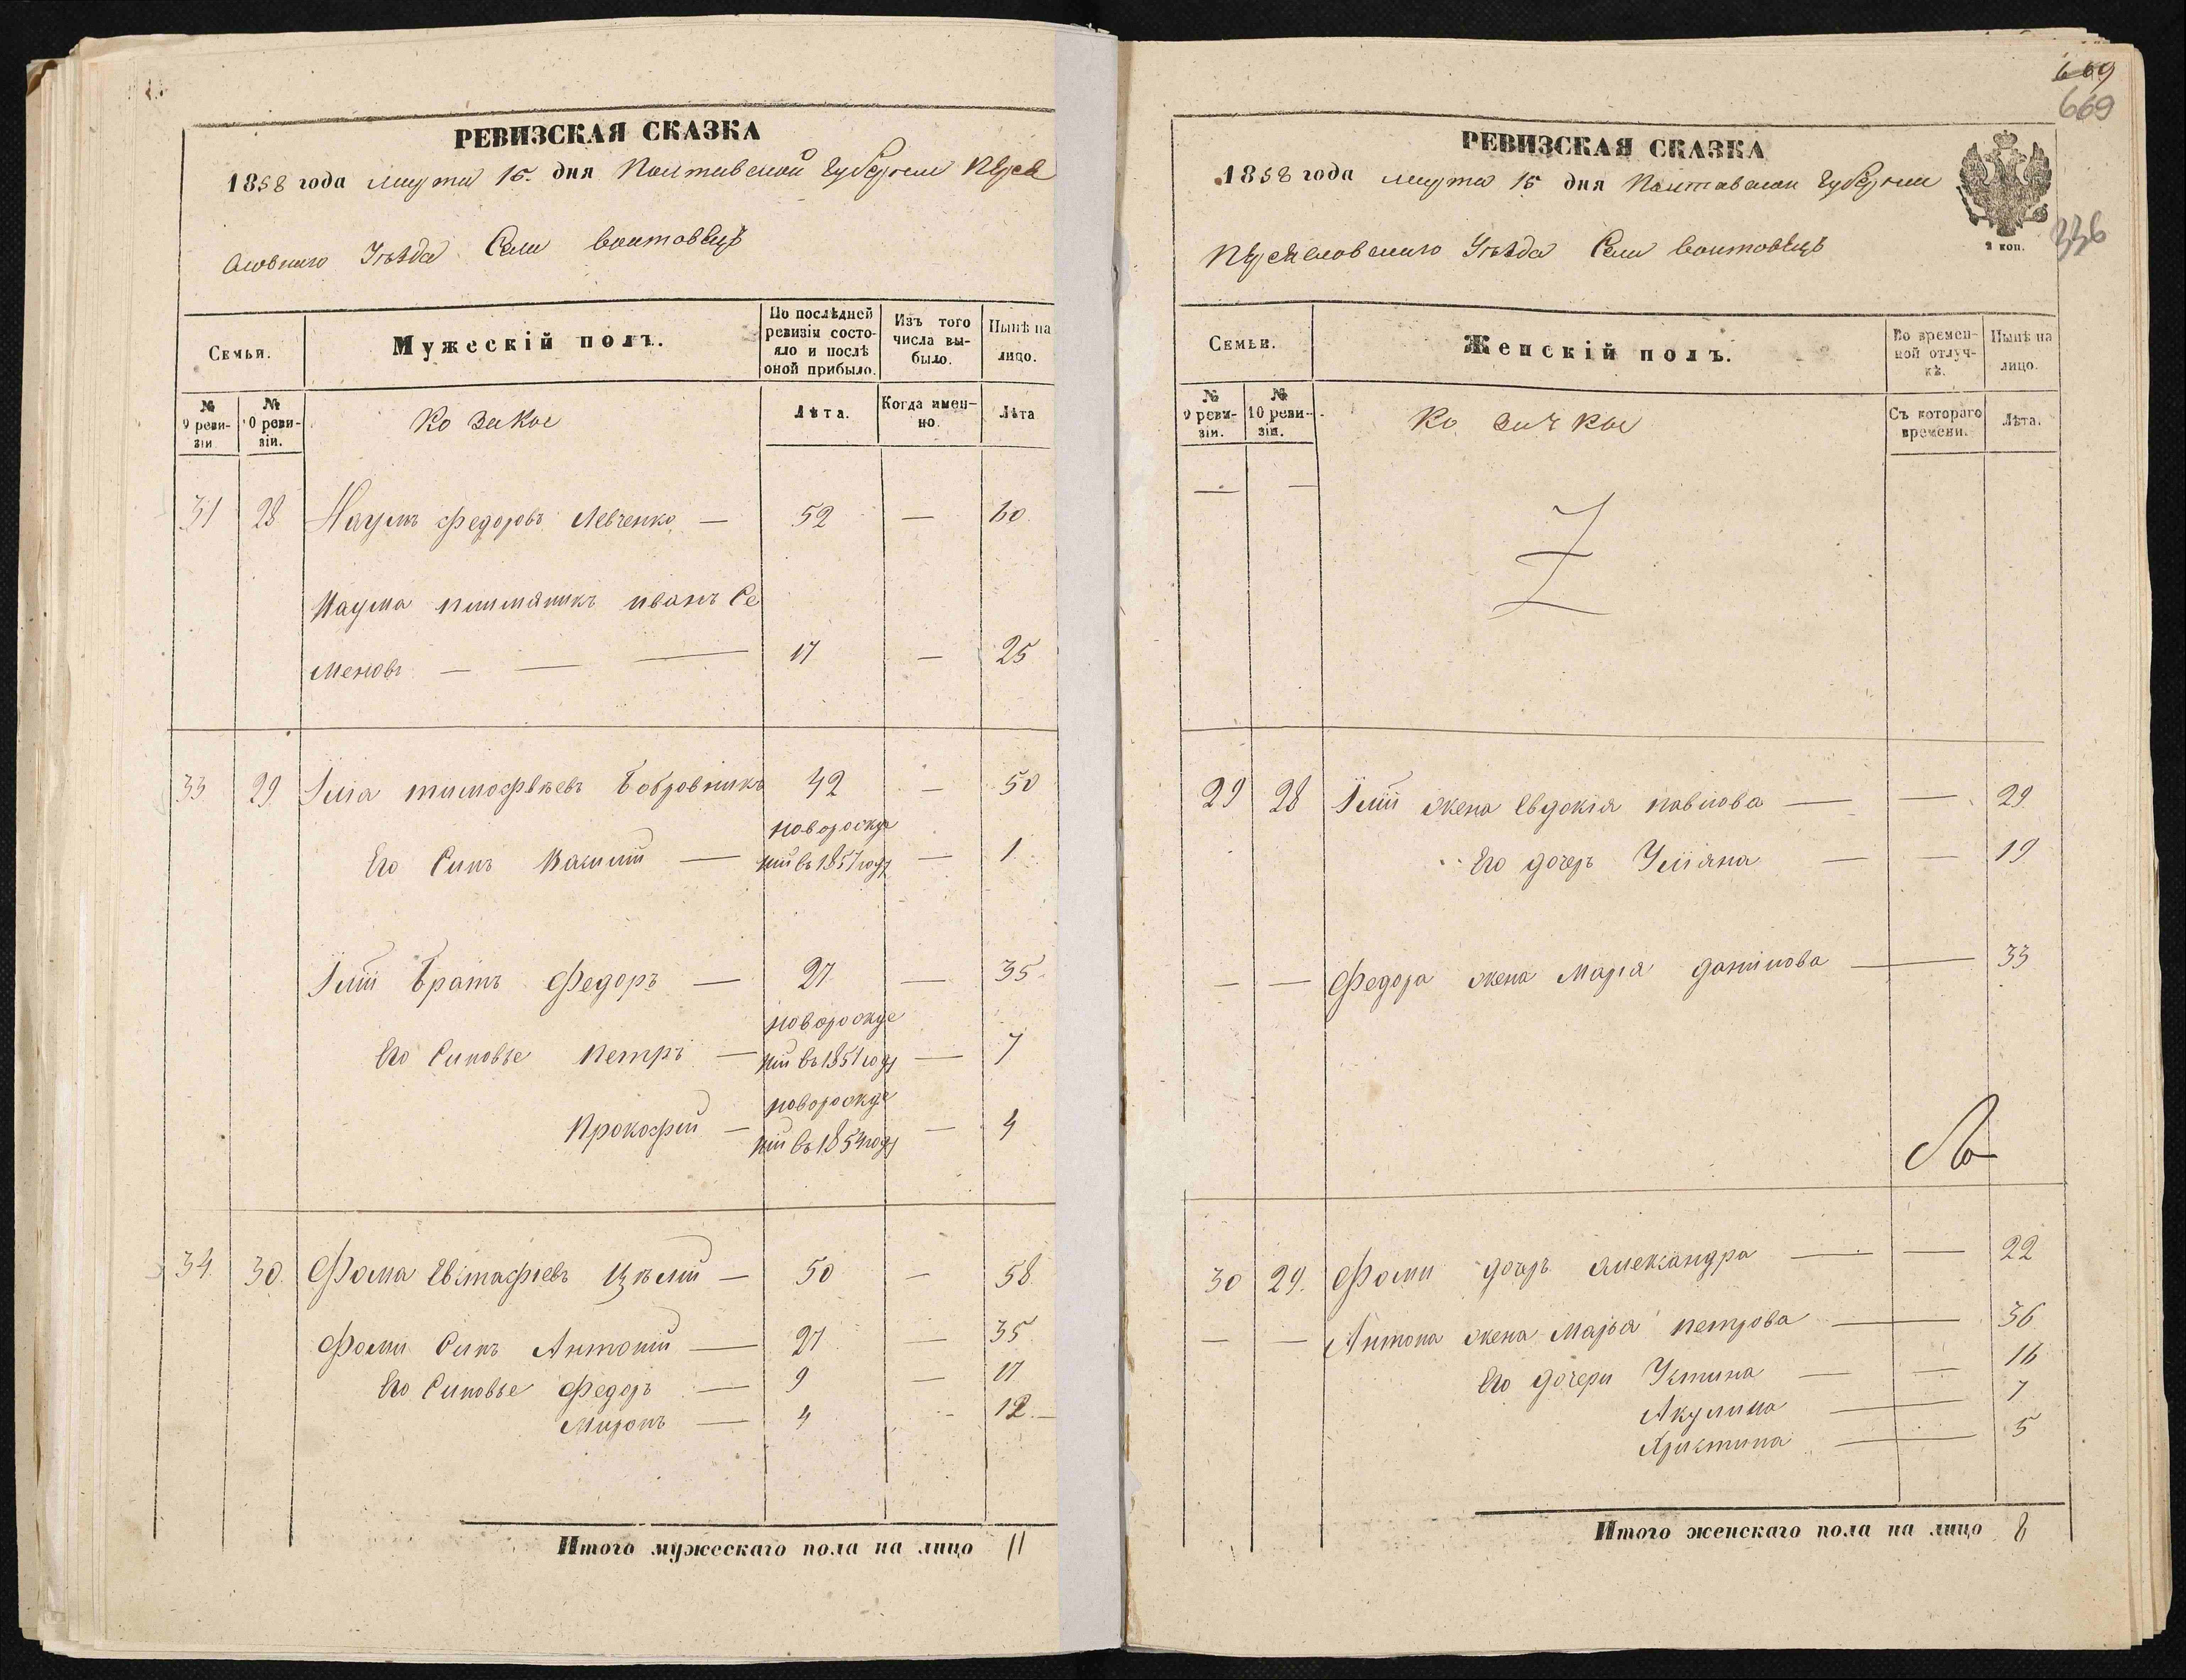 РЕВИЗСКАЯ СКАЗКА
1858 года марта 15 дня Полтавской Губернии Перея
словского Уѣзда Села Воитовецъ
Семьи.
Мужескій полъ.
По послѣдней ревизіи состояло и послѣ оной прибыло.
Изъ того числа выбыло.
Нынѣ на лицо.
№ 9 ревизіи
№ 10 ревизіи.
Козаки
Лѣта.
Когда именно.
Лѣта
31 28 Наумъ Федоровъ Левченко — 52 — 60
Наума племяникъ иванъ Се
меновъ — — — 17 — 25
33 29 Iлiа тимофѣевъ Бобровникъ 42 — 50
новорожде
Его Синъ Василий — ний въ 1857 году — 1
Iлiи Братъ Федоръ — 27 — 35
новорожде
Его Синовье Петръ — ний въ 1851 году — 7
новорожде
Прокофий — ний въ 1854 году — 4
34 30. Фома Евстафіевъ — 50 — 58
Фоми Синъ Антоний — 27 — 35
Его Синовье Федоръ — 9 — 17
Миронъ — 4 - 12. —
Итого мужескаго пола на лицо 11
669
669
РЕВИЗСКАЯ СКАЗКА
1858 года марта 15 дня Полтавской Губернии
2 коп.
336
Переясловского Уѣзда Села Воитовецъ
Семьи.
Женскій полъ.
Во временной отлучкѣ.
Нынѣ на лицо.
№ 9 ревизіи.
№ 10 ревизіи.
Козачки
Съ котораго времени.
Лѣта.
— —
29 28 Iлiи жена Евдокія павлова — — 29
Его дочеръ Улiяна — — 19
— — Федора жена Марiя данилова — 33
30 29. Фоми дочеръ Александра — — 22
— — Антона жена Марья петрова — 36
Его дочери Устина — — 16
Акулина — 7
Христина — 5
Итого женскаго пола на лицо 8